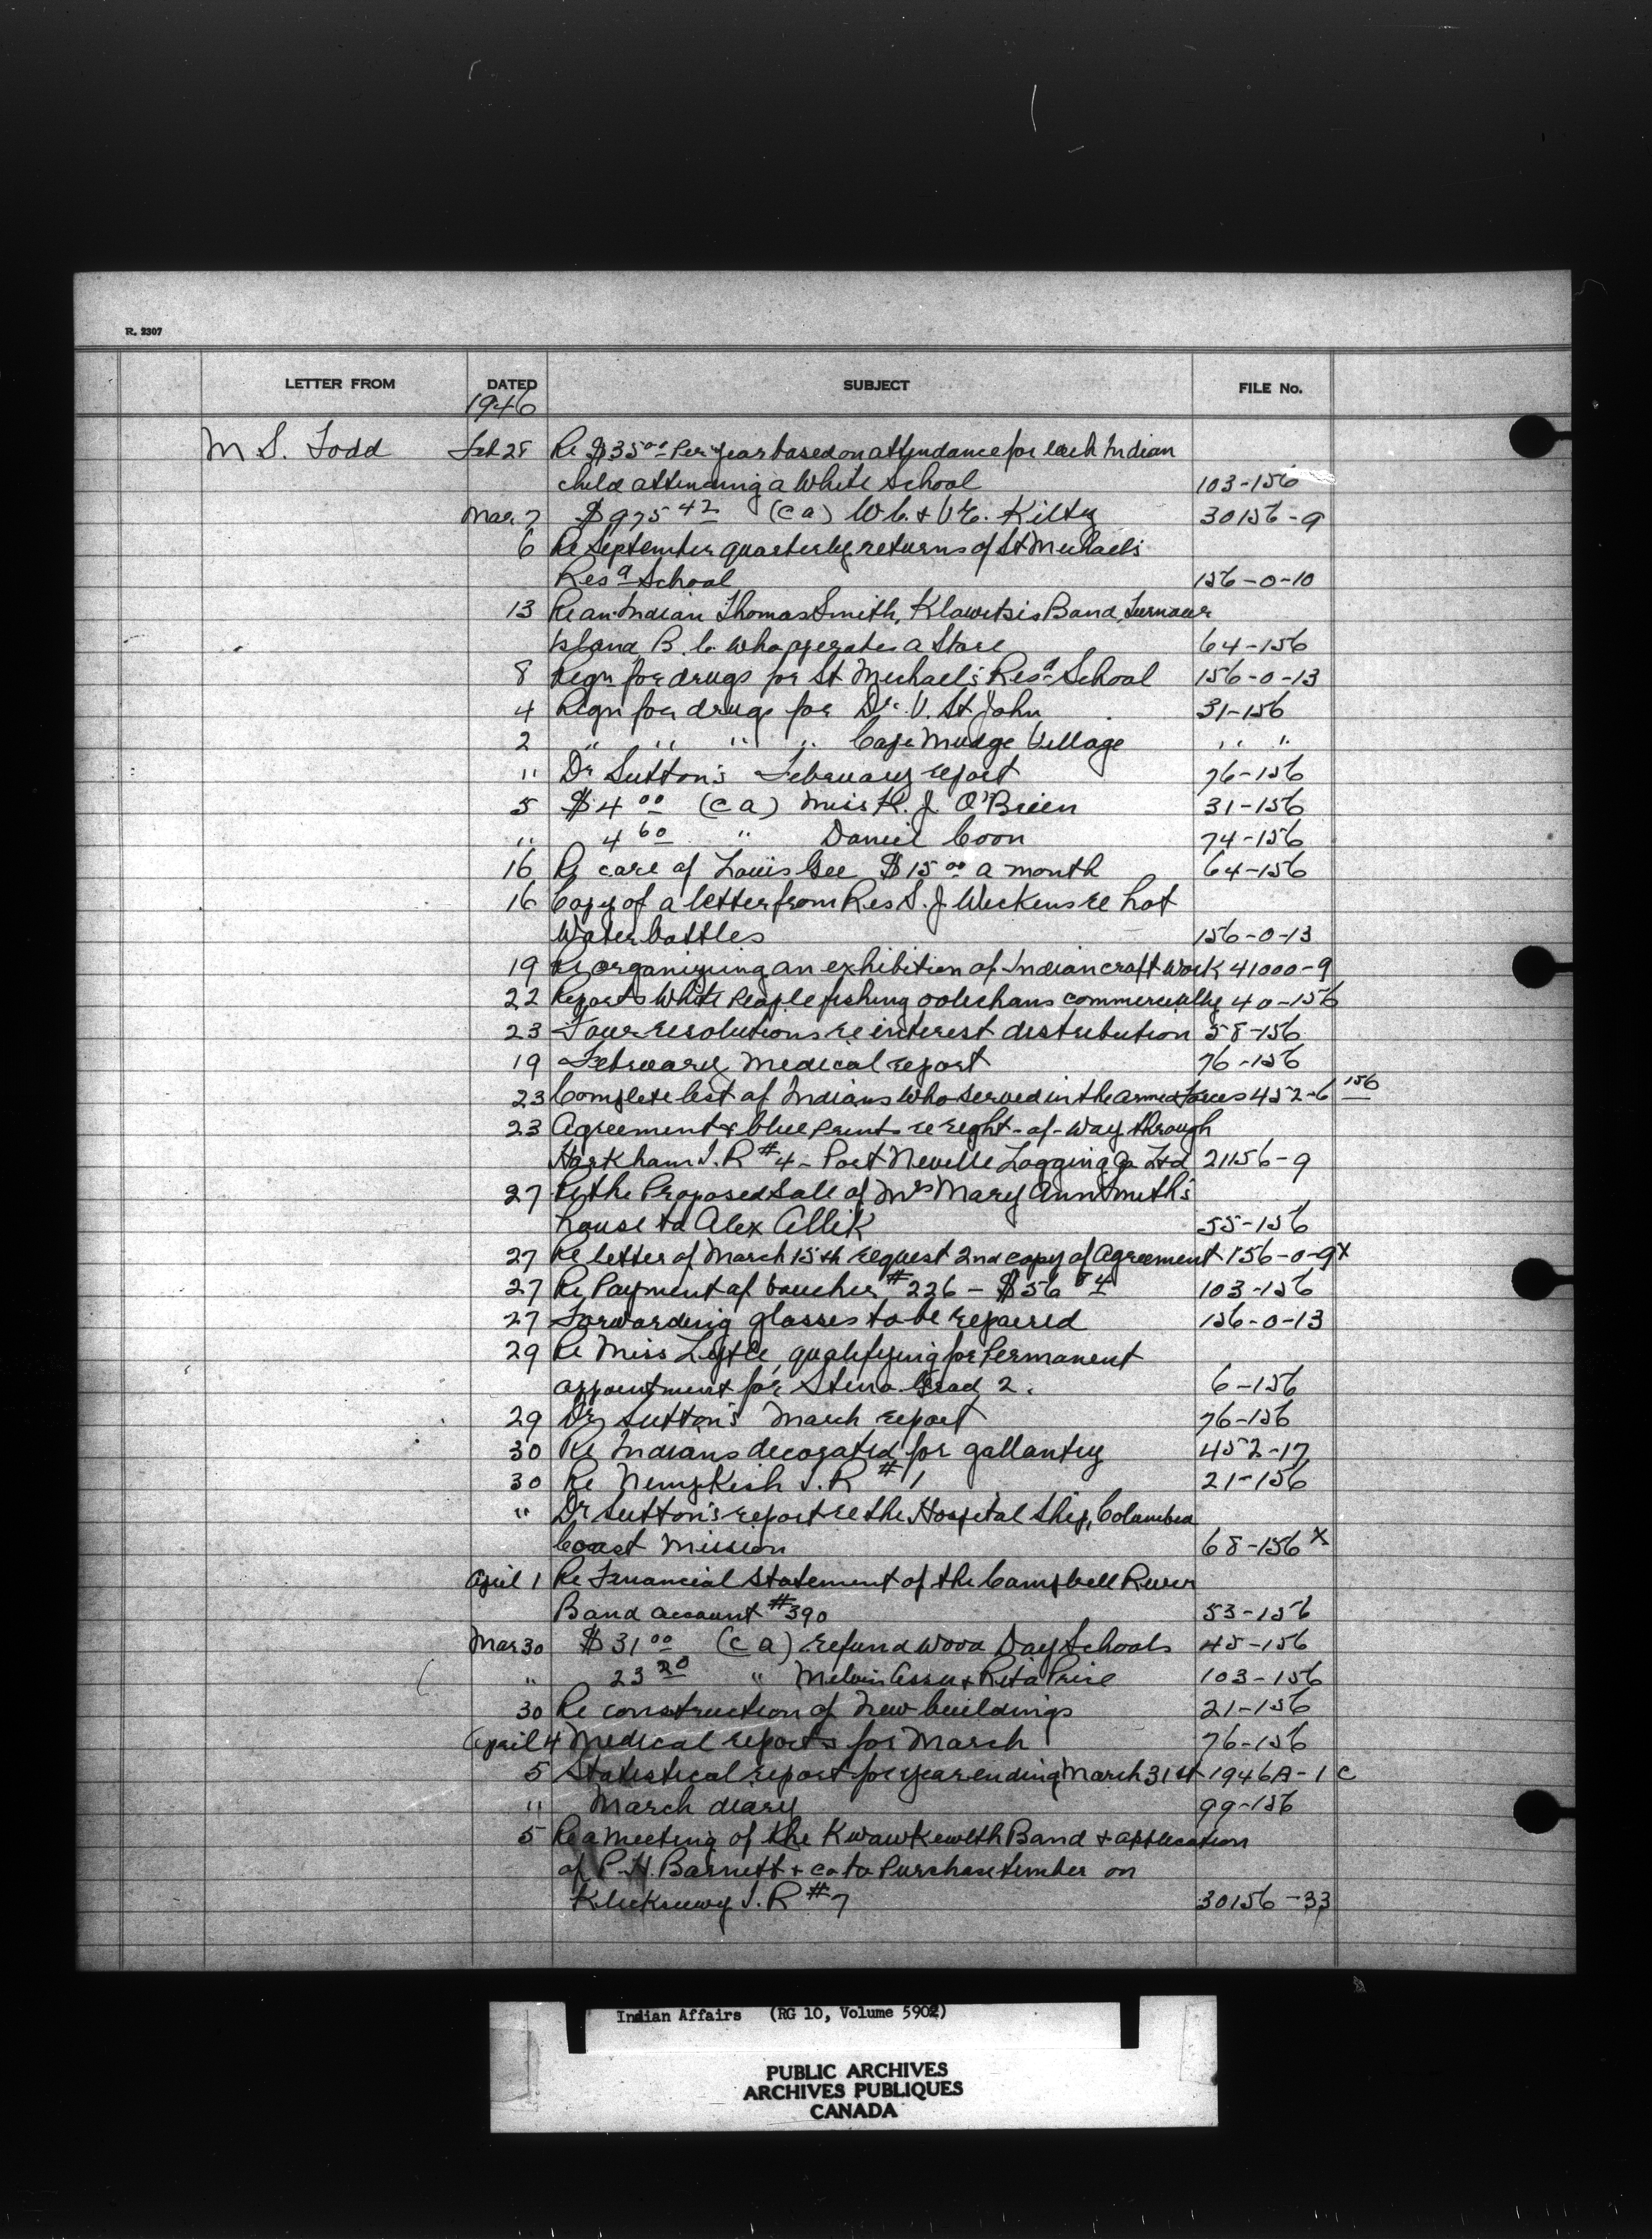 R. 2307
LETTER FROM DATED SUBJECT FILE No.
1946
M S. Todd Feb 28 Re $35.00 Per year based on attendance for each Indian
child attending a White School 103-156
Mar 7 $975 42 (C a) W.C. & V.E. Kilty 30156-9
6 Re September quarterly returns of St Michael's
Res a School 156-0-10
13 Re an Indian Thomas Smith, Klawitsis Band, Turnour
Island B.C. who operates a Store 64-156
8 Reqn for drugs for St Michael's Res a School 156-0-13
4 Reqn for drugs for Dr. V. St John 31-156
2 " " " " Cape Mudge Village " "
" Dr Sutton's February report 76-156
5 $4 00 (C a) Miss K. J. O'Brien 31-156
" 4 60 " Daniel Coon 74-156
16 Re care of Louis Gee $15 00 a month 64-156
16 Copy of a letter from Res S. J. Wickens re hot
Water bottles 156-0-13
19 Re organizing an exhibition of Indian craft work 41000-9
22 Reports White People fishing oolechans commercially 40-156
23 Four resolutions re interest distribution 58-156
19 February Medical report 76-156
23 Complete list of Indians who served in the armed Forces 452-6 156
23 Agreement & blue Prints re right-of-way through
Harkham I.R #4 - Port Neville Logging Co Ltd 21156-9
27 Re the Proposed Sale of Mrs Mary Ann Smith's
house to Alex Allik 55-156
27 Re letter of March 15th request 2nd copy of Agreement 156-0-9x
27 Re Payment of voucher #226 - $56 84 103-156
27 Forwarding glasses to be repaired 156-0-13
29 Re Miss Lytle, qualifying for Permanent
appointment for Steno Grad 2. 6-156
29 Dr Sutton's March report 76-156
30 Re Indians decorated for gallantry 452-17
30 Re Nempkish I.R #1 21-156
" Dr Sutton's report re the Hospital Ship, Columbia
Coast Mission 68-156 x
April 1 Re Financial Statement of the Campbell River
Band account #390 53-156
Mar 30 $31 00 (C a) refund wood Day Schools 45-156
" 23 20 " Melvin Assu & Rita Price 103-156
30 Re construction of New buildings 21-156
April 4 Medical reports for March 76-156
5 Statistical report for year ending March 31st 1946A-1 C
" March diary 99-156
5 Re a meeting of the Kwawkewlth Band & application
of P.H. Barnett & Co to Purchase timber on
Klickseewy I.R #7 30156-33
Indian Affairs (RG 10, Volume 5902)
PUBLIC ARCHIVES
ARCHIVES PUBLIQUES
CANADA